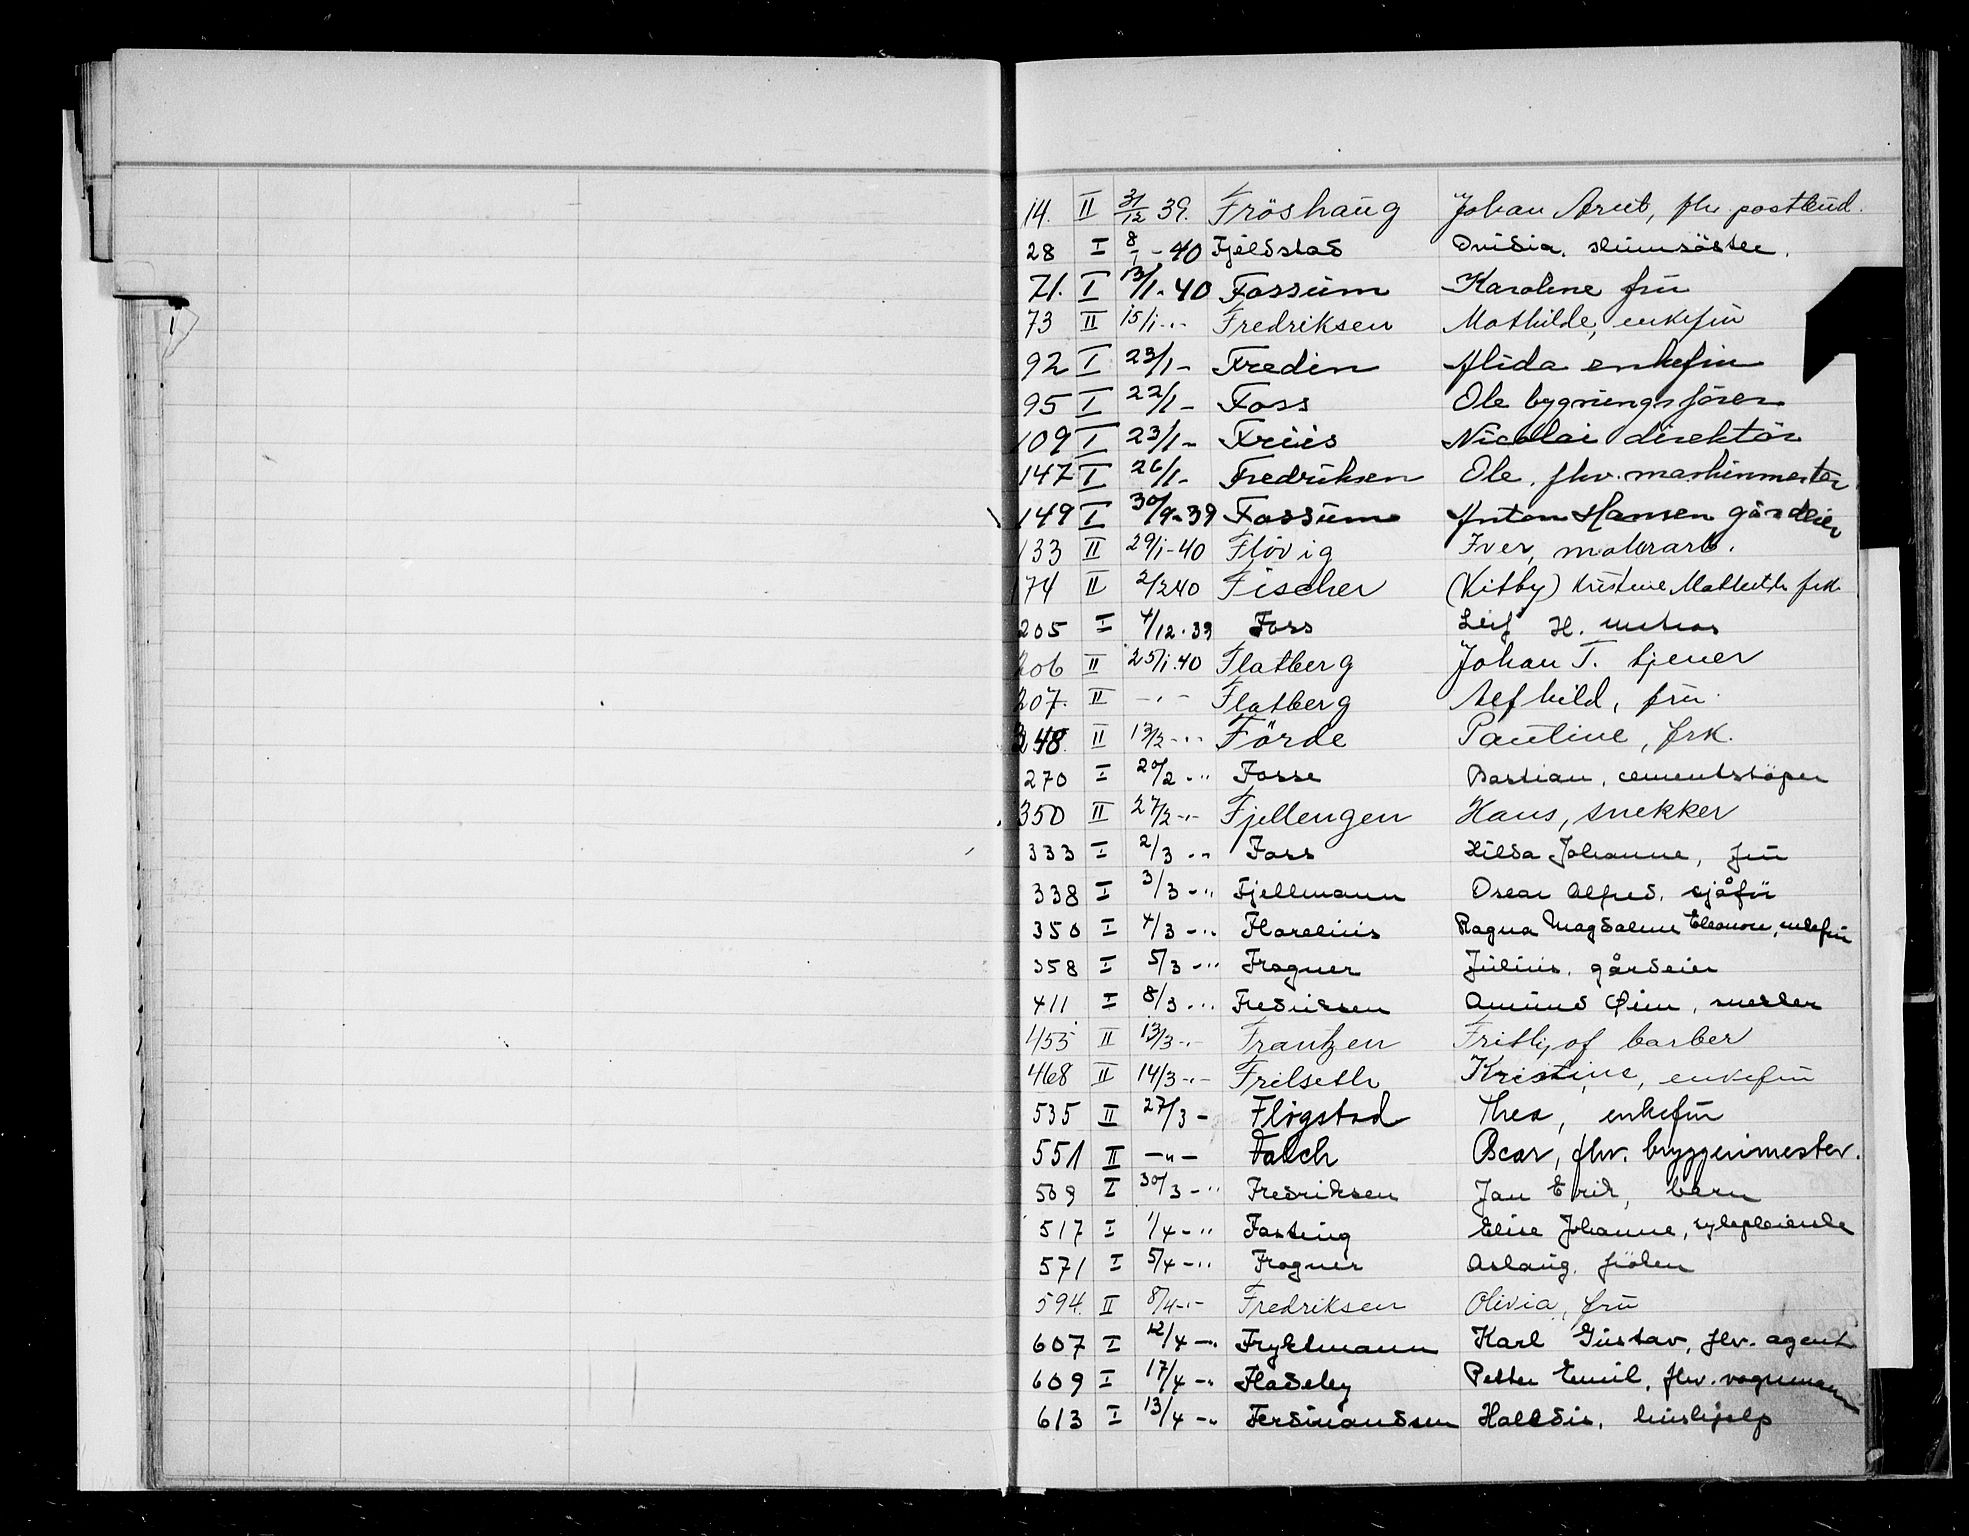 14. II 31/12 39. Fröshaug Johan Arnt, fhv. postbud.
28 I 8/1 - 40 Fjeldstad Ovidia,
71. I 13/1 - 40 Fossum Karoline frü
73 II 15/1 -"- Fredriksen Mathilde, enkefrü
92 I 23/1 - Fredin Alida enkefrü
95 I 22/1 - Foss Ole bygningsfører
109 I 23/1 - Friis Nicolai direktör
147 I 26/1 - Fredriksen Ole, fhv. maskinmester
149 I 30/9 - 39 Fossum Anton Hansen gårdeier
133 II 29/1 - 40 Flövig Iver, motorarb.
174 II 2/2 40 Fischer (Kitby) Kristine frk.
205 I 4/12 - 39 Foss Leif H. matros
206 II 25/1 . 40 Flatberg Johan T. tjener
207. II -"- Flatberg Alfhild, frü.
248. II 13/2 -"- Förde Pauline, frk.
270 I 20/2 -" Fosse Bastian, cementstöper
350 II 27/2 -"- Fjellengen Hans, snekker
333 I 2/3 -" Foss Hilda Johanne, frü
338 I 3/3 -" Fjellmann Oscar Alfred, sjåfür
350 I 4/3 -" Florelius Ragna Magdalene Eleonore, enkefrü
358 I 5/3 -" Frogner Julius, gårdeier
411 I 8/3 -" Fredriksen Amünd snekker
455 II 13/3 -"- Frantzen Frithjof barber
468 II 14/3 -"- Frilseth Kristine, enkefrü
535 II 27/3 - Fløgstad Thea, enkefrü
551 II -"- Falch Oscar, fhv. bryggerimester.
509 I 30/3 -" Fredriksen Jan Erik, barn
517 I 1/4 -" Fasting Elise Johanne, sykepleierske
571 I 5/4 -" Frogner Aslaug, fröken
594. II 8/4 -"- Fredriksen Olivia, frü
607 I 12/4 -" Frykmann Karl Güstav, fhv. agent
609 I 17/4 -" Fladeby Petter Emil, fhv. vognmann
613 I 13/4 -" Ferdinandsen Halldis, hüshjelp